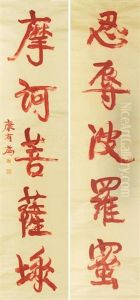 忍辱波羅蜜
摩訶菩薩埵
康有為